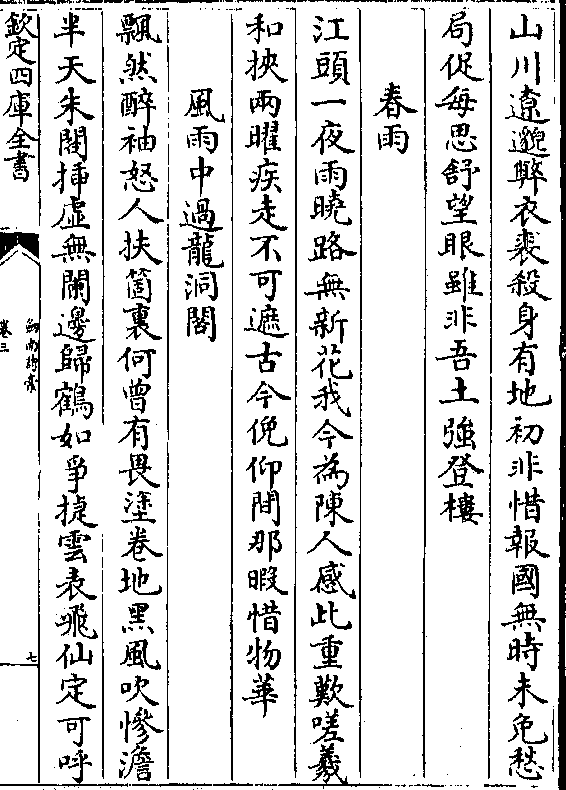 山川遼邈弊衣裘殺身有地初非惜報國無時未免愁
局促每思舒望眼雖非吾土強登樓
春雨
江頭一夜雨曉路無新花我今為陳人感此重歎嗟羲
和挾兩曜疾走不可遮古今俛仰間那暇惜物華
風雨中過龍洞閣
飄然醉袖怒人扶箇裏何曾有畏塗卷地黑風吹慘澹
半天朱閣插虛無闌邊歸鶴如爭捷雲表飛仙定可呼
欽定四庫全書
劍南詩稾
卷三
七